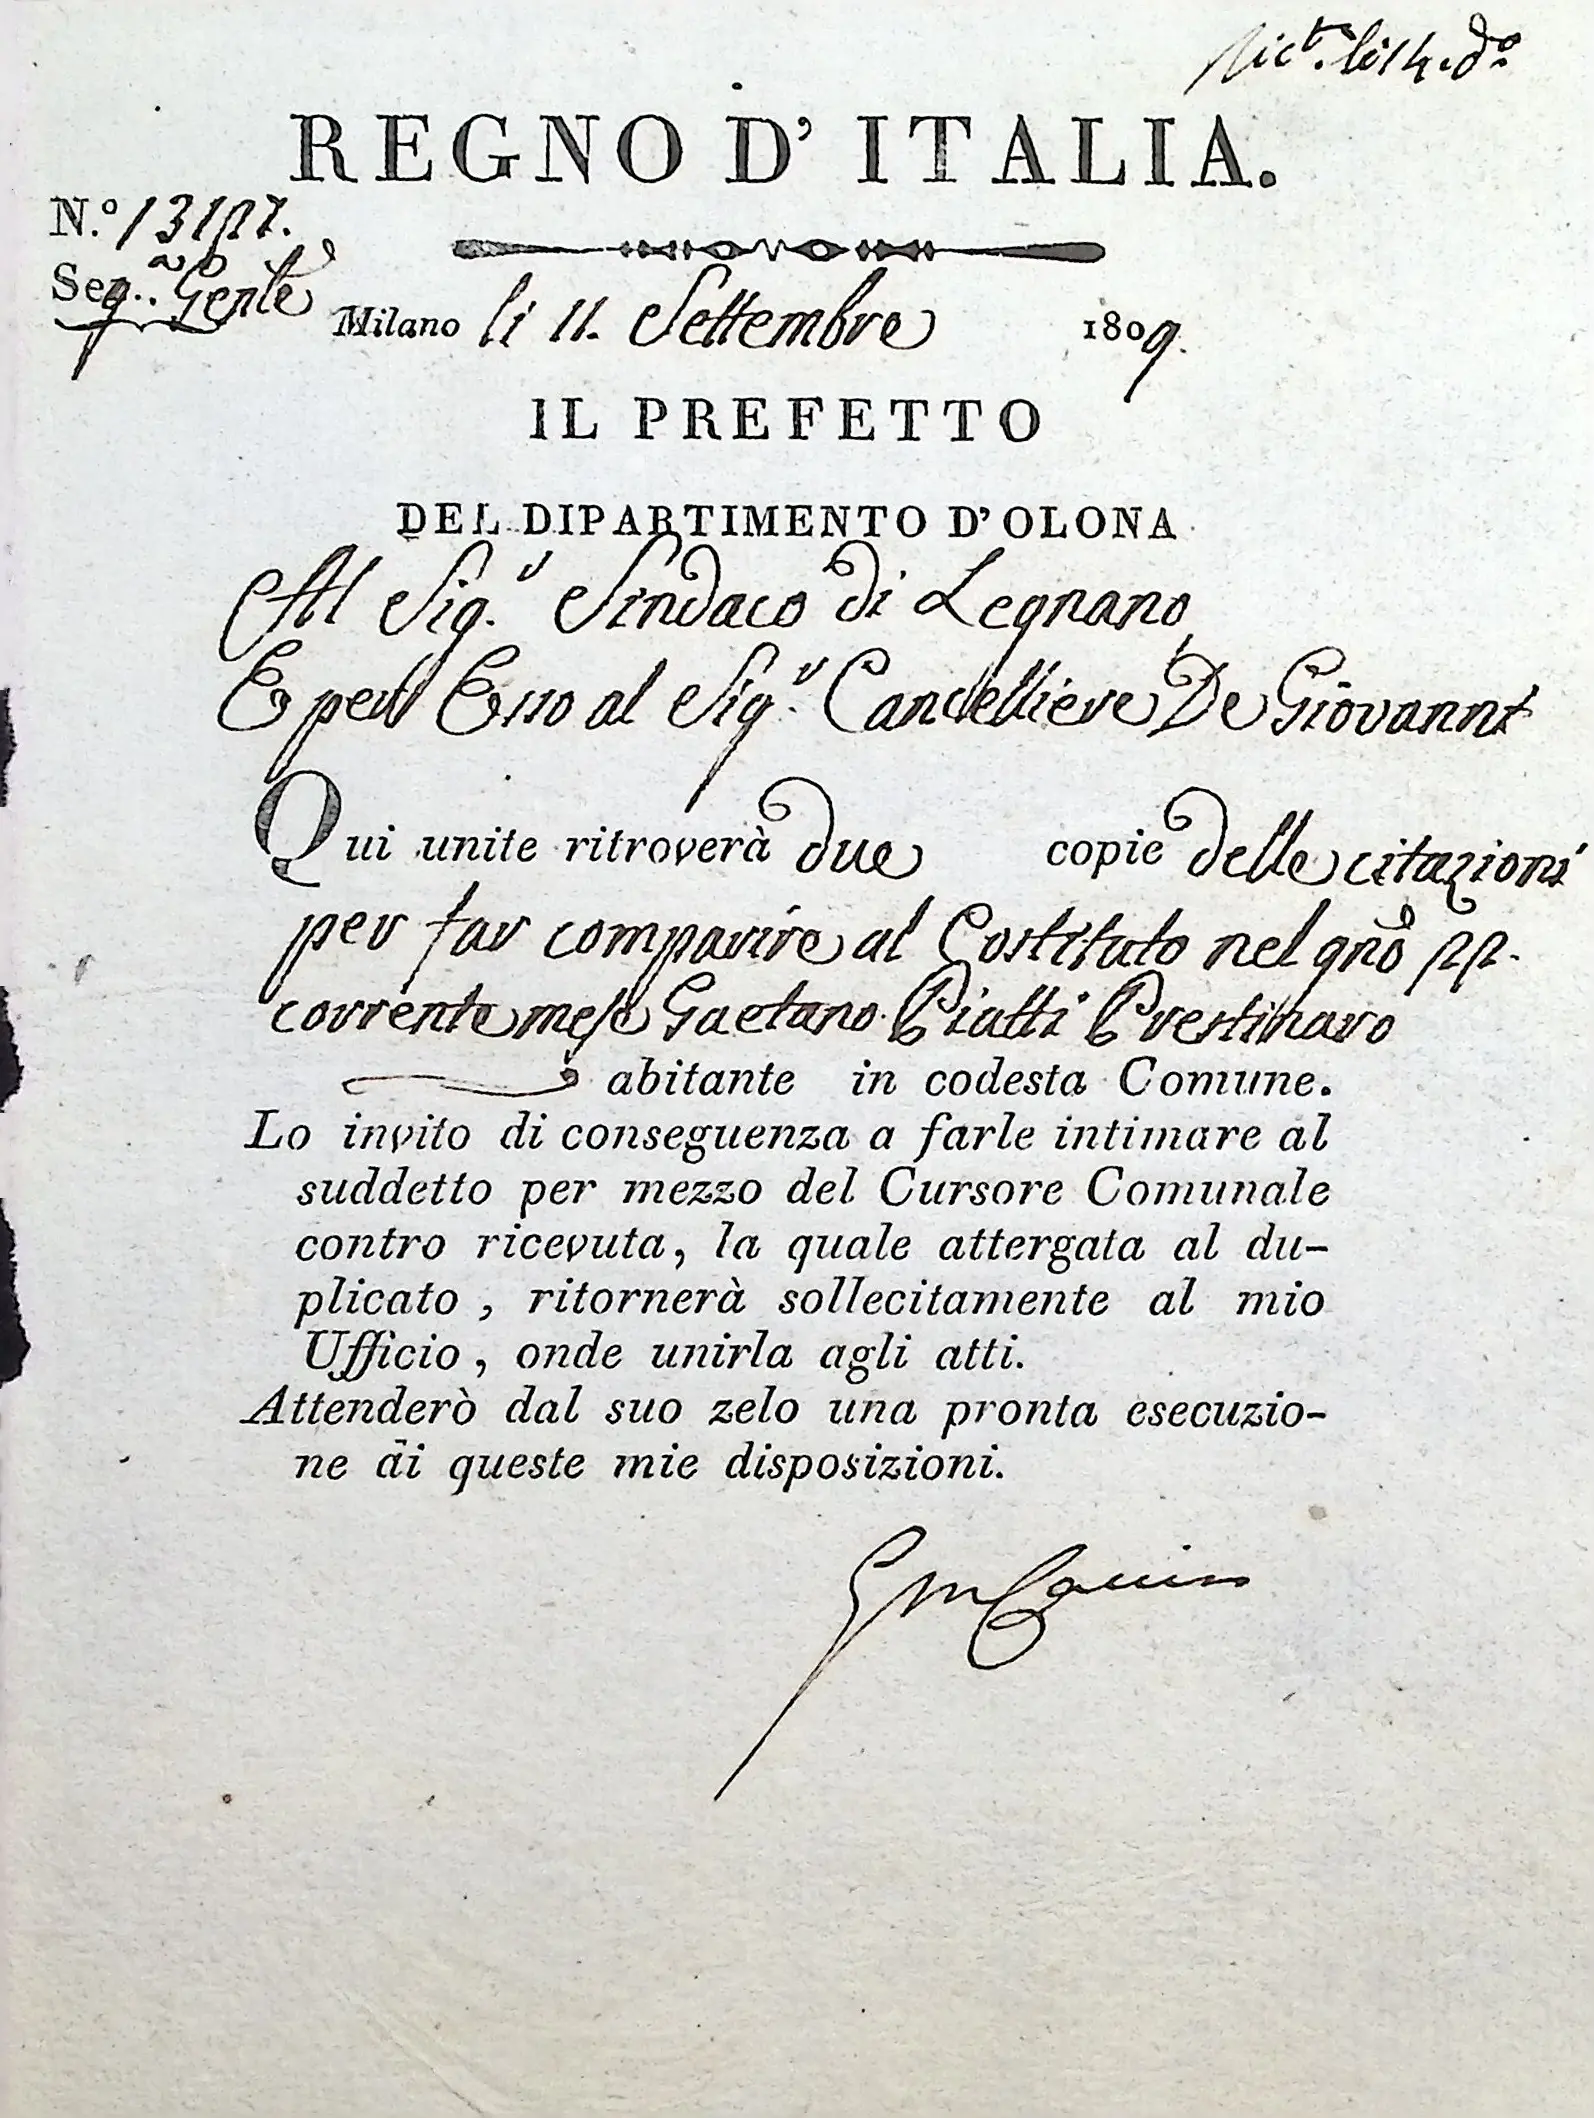 li 14. do
REGNO D' ITALIA.
N.º
Seg.
Milano li 11. Settembre 1809.
IL PREFETTO
DEL DIPARTIMENTO D' OLONA
Al Sig.r Sindaco di Legnano
E per Esso al Sig.r Cancelliere De Giovanni
Qui unite ritroverà due copie delle citazioni
per far comparire al Costituto nel gno
corrente mese Gaetano Piatti Prestinaro
abitante in codesta Comune.
Lo invito di conseguenza a farle intimare al
suddetto per mezzo del Cursore Comunale
contro ricevuta, la quale attergata al du-
plicato, ritornerà sollecitamente al mio
Ufficio, onde unirla agli atti.
Attenderò dal suo zelo una pronta esecuzio-
ne di queste mie disposizioni.